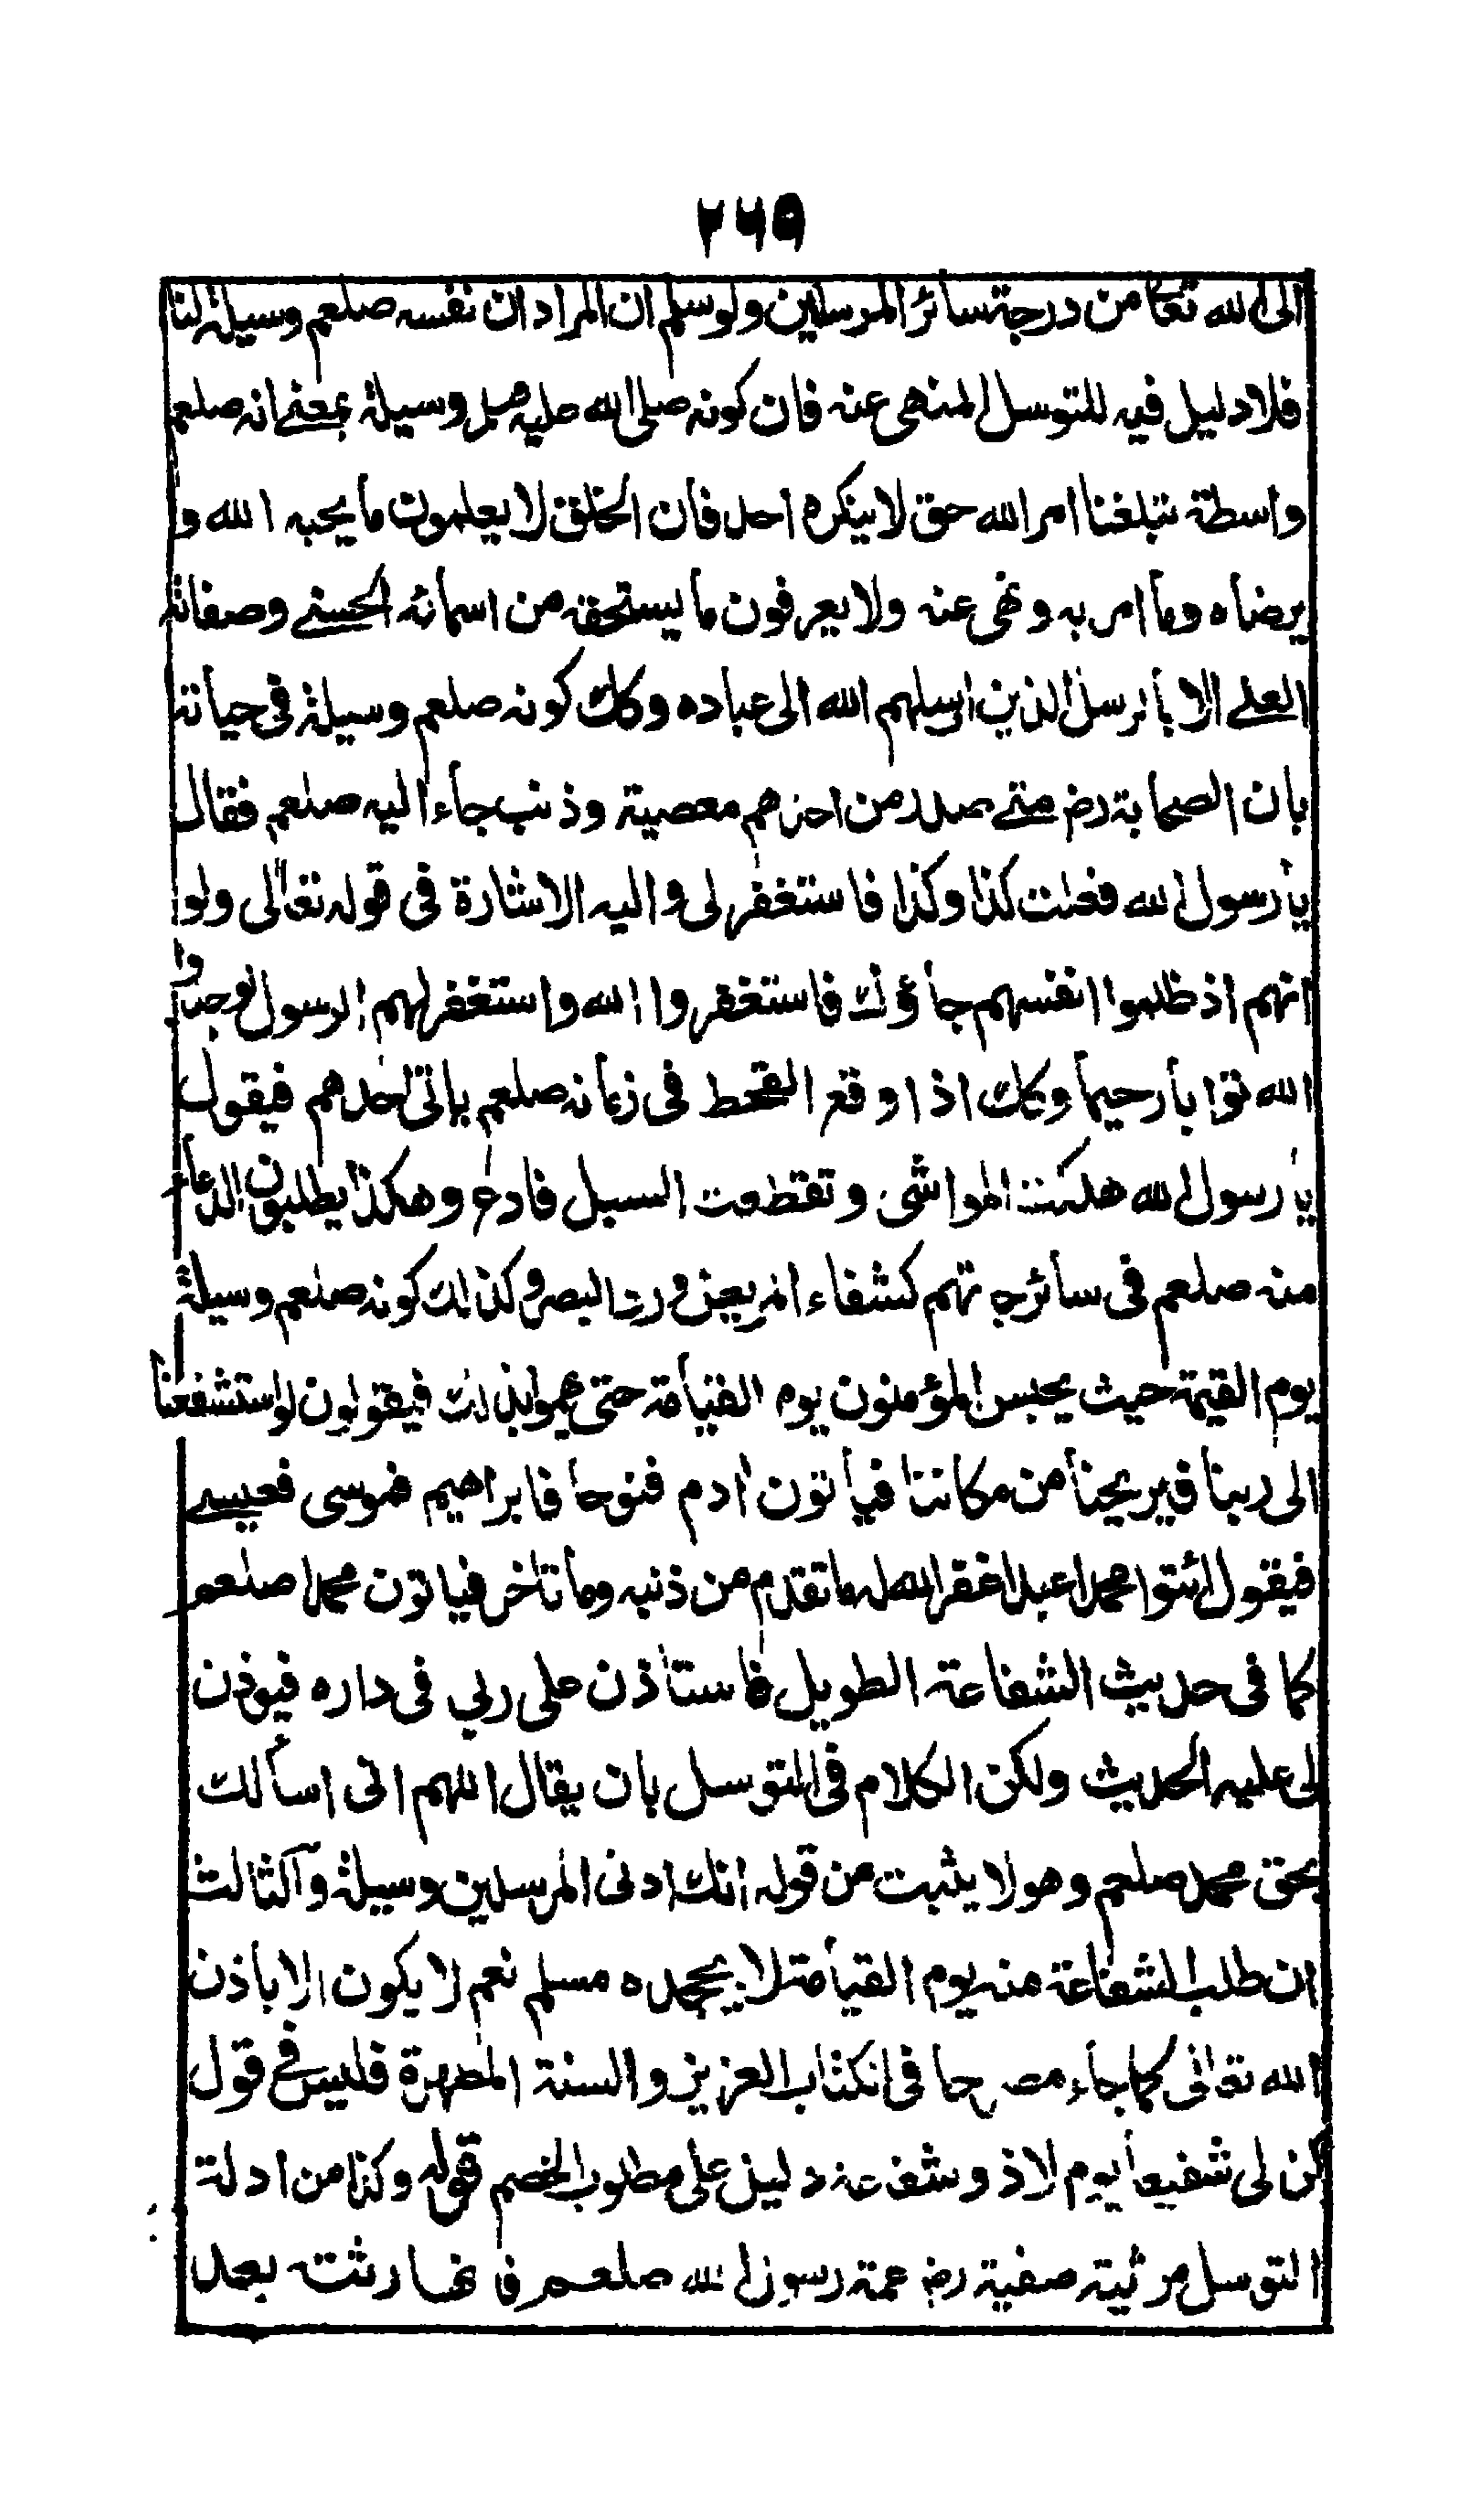 ٢٦٥
الى الله تعا من درجة سائر المرسلين ولو سلم ان المراد ان نفسه صلعم وسيلة لنا
فلا دليل فيه للتوسل المنهى عنه فان كونه صلى الله عليه وسلم وسيلة بمعنے انه صلعم
واسطة تبلغنا امر الله حق لا ينكره احد فان الخلق لا يعلمون ما يحبه الله و
يرضاه وما امر به ونهى عنه ولا يعرفون ما يستحقه من اسمائه الحسنے وصفاته
العلے الا بالرسل الذين ارسلهم الله الى عباده وكك كونه صلعم وسيلة فى حياته
بان الصحابة رضـ متے صدر من احدهم معصية وذنب جاء اليه صلعم فقال
يا رسول الله فعلت كذا وكذا فاستغفر لى واليه الاشارة فى قوله تعالى ولو
انهم اذ ظلموا انفسهم جاؤك فاستغفروا الله واستغفر لهم الرسول لوجدوا
الله توابا رحيما وكك اذا وقع القحط فى زمانه صلعم ياتى احدهم فيقول
يا رسول الله هلكت المواشى وتقطعت السبل فادع وهكذا يطلبون الدعاء
منه صلعم فى سائر حاجاتهم كشفاء المريض ورد البصر وكذلك كونه صلعم وسيلة
يوم القيمة حيث يحبس المؤمنون يوم القيامة حتى يهموا بذلك فيقولون لو استشفعنا
الى ربنا فيريحنا من مكاننا فياتون ادم فنوحا فابراهيم فموسى فعيسے
فيقول ائتوا محمدا عبدا غفر الله له ما تقدم من ذنبه وما تاخر فياتون محمدا صلعم
كما فى حديث الشفاعة الطويل فاستاذن على ربي فى داره فيوذن
لى عليه الحديث ولكن الكلام فى التوسل بان يقال اللهم انى اسألك
بحق محمد صلعم وهو لا يثبت من قوله انك ادنى المرسلين وسيلة والثالث
ان طلب الشفاعة منه يوم القيامة لا يجحده مسلم نعم لا يكون الا باذن
الله تعالى كما جاء مصرحا فى الكتاب العزيز والسنة المطهرة فليس فى قول
كن لى شفيعا يوم لا ذو شفاعة دليل على مطلوب الخصم قوله وكذا من ادلة
التوسل مرثية صفية رضـ عمة رسول الله صلعم فانها رثته بعد